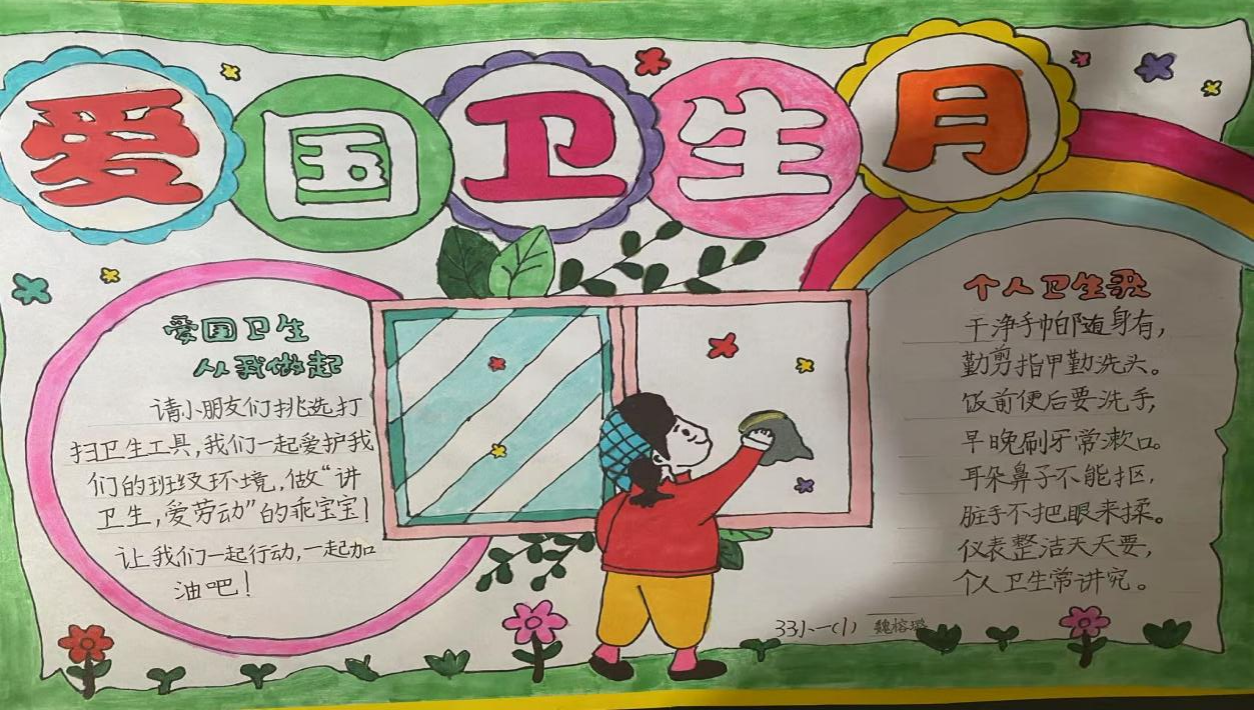 爱国卫生月
爱国卫生
从我做起
请小朋友们挑选打
扫卫生工具,我们一起爱护我
们的班级环境,做“讲
卫生,爱劳动”的乖宝宝!
让我们一起行动,一起加
油吧!
个人卫生歌
干净手帕随身有,
勤剪指甲勤洗头。
饭前便后要洗手,
早晚刷牙常漱口。
耳朵鼻子不能抠,
脏手不把眼来揉。
仪表整洁天天要,
个人卫生常讲究。
33小一(1) 魏榕璐